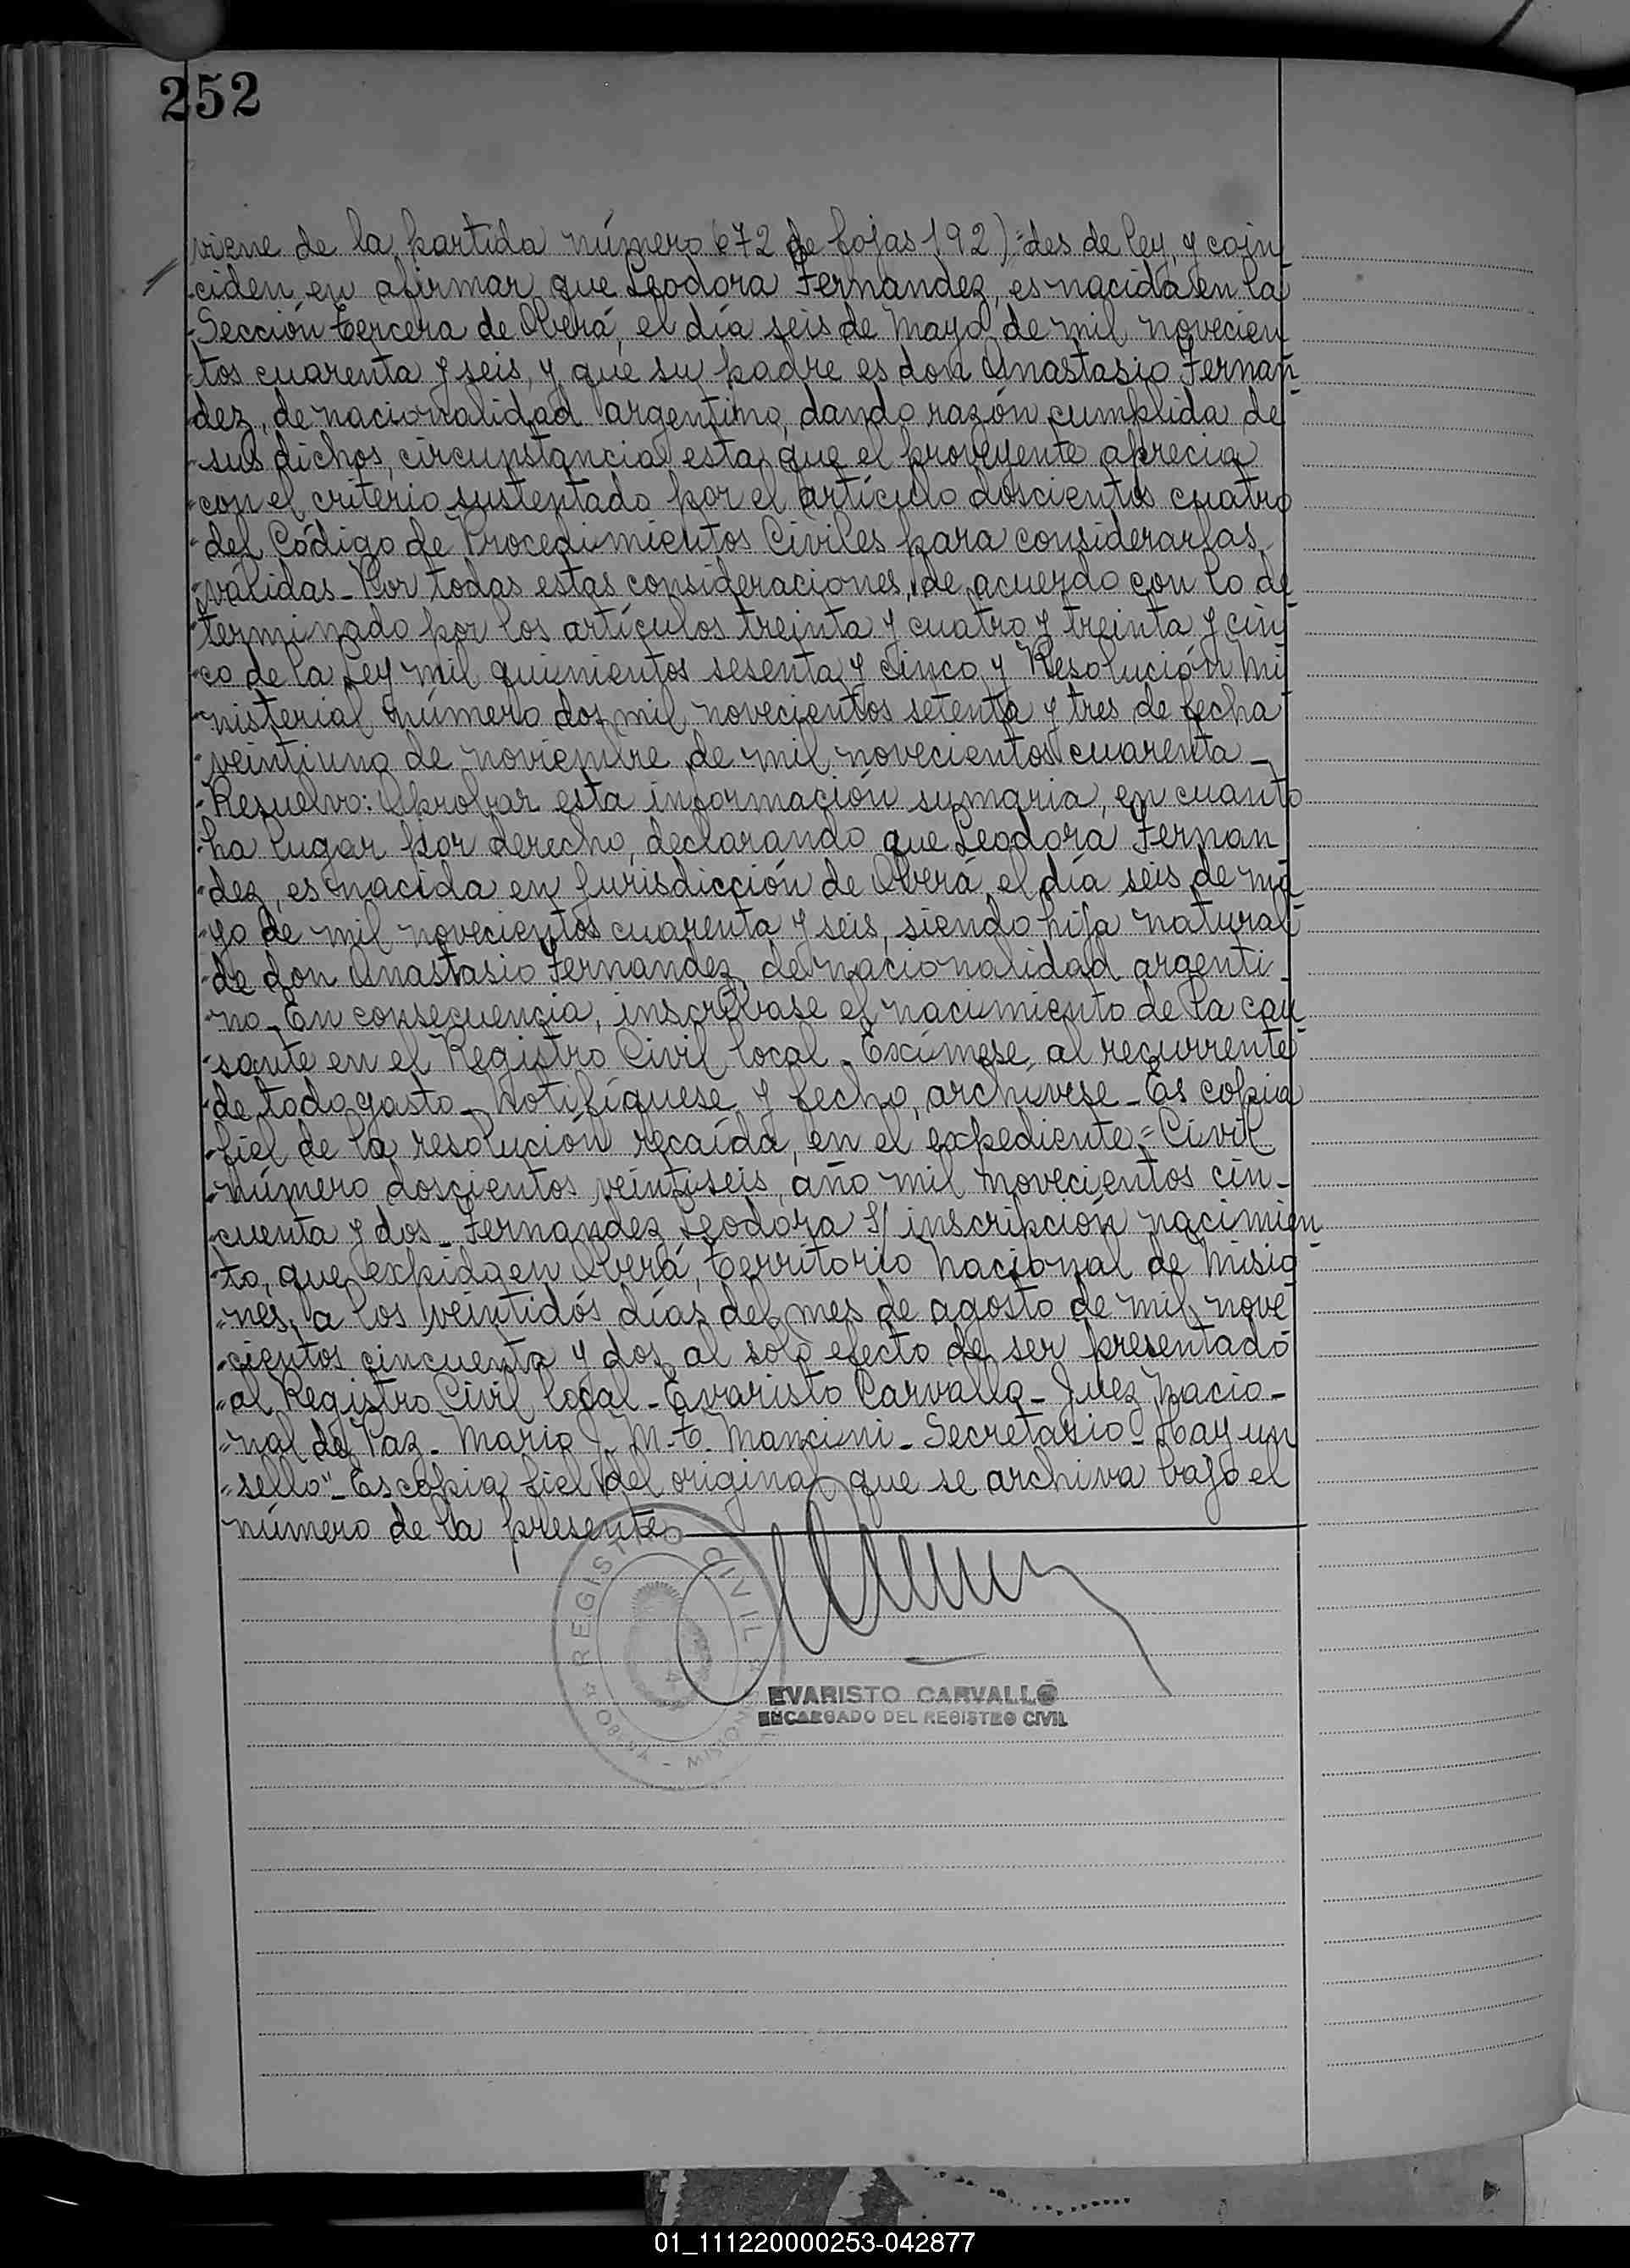 252
viene de la partida número 672 de fojas 192):"des de ley, y coin
ciden en afirmar que Leodora Fernandez, es nacida en la
Sección tercera de Oberá, el día seis de Mayo de mil novecien
tos cuarenta y seis, y que su padre es don Anastasio Fernan-
dez, de nacionalidad argentino, dando razón cumplida de
sus dichos, circunstancia esta que el proveyente aprecia
con el criterio sustentado por el artículo doscientos cuatro
del Código de Procedimientos Civiles para considerarlas
válidas_Por todas estas consideraciones, de acuerdo con lo de
terminado por los artículos treinta y cuatro y treinta y cin
co de la Ley mil quinientos sesenta y cinco y Resolución Mi
nisterial número dos mil novecientos setenta y tres de fecha
veintiuno de noviembre de mil novecientos cuarenta_
Resuelvo: Aprobar esta información sumaria, en cuanto
ha lugar por derecho, declarando que Leodora Fernan
dez, es nacida en jurisdicción de Oberá, el día seis de ma
yo de mil novecientos cuarenta y seis, siendo hija natural
de don Anastasio Fernandez, de nacionalidad argenti-
no_En consecuencia, inscríbase el nacimiento de la cau
sante en el Registro Civil local_Exímese al recurrente
de todo gasto_Notifíquese y fecho, archívese_Es copia
fiel de la resolución recaída, en el expediente=Civil
número doscientos veintiseis, año mil novecientos cin-
cuenta y dos_Fernandez Leodora S/ inscripción nacimien
to, que expido en Oberá, Territorio Nacional de Misio
nes, a los veintidós días del mes de agosto de mil nove
cientos cincuenta y dos, al solo efecto de ser presentado
al Registro Civil local_Evaristo Carvallo_Juez Nacio-
nal de Paz_Mario J. M. T. Mancini_Secretario_Hay un
sello"_Es copia fiel del original que se archiva bajo el
número de la presente
REGISTRO CIVIL
OBERA - MISIONES
EVARISTO CARVALLO
ENCARGADO DEL REGISTRO CIVIL
01_111220000253-042877